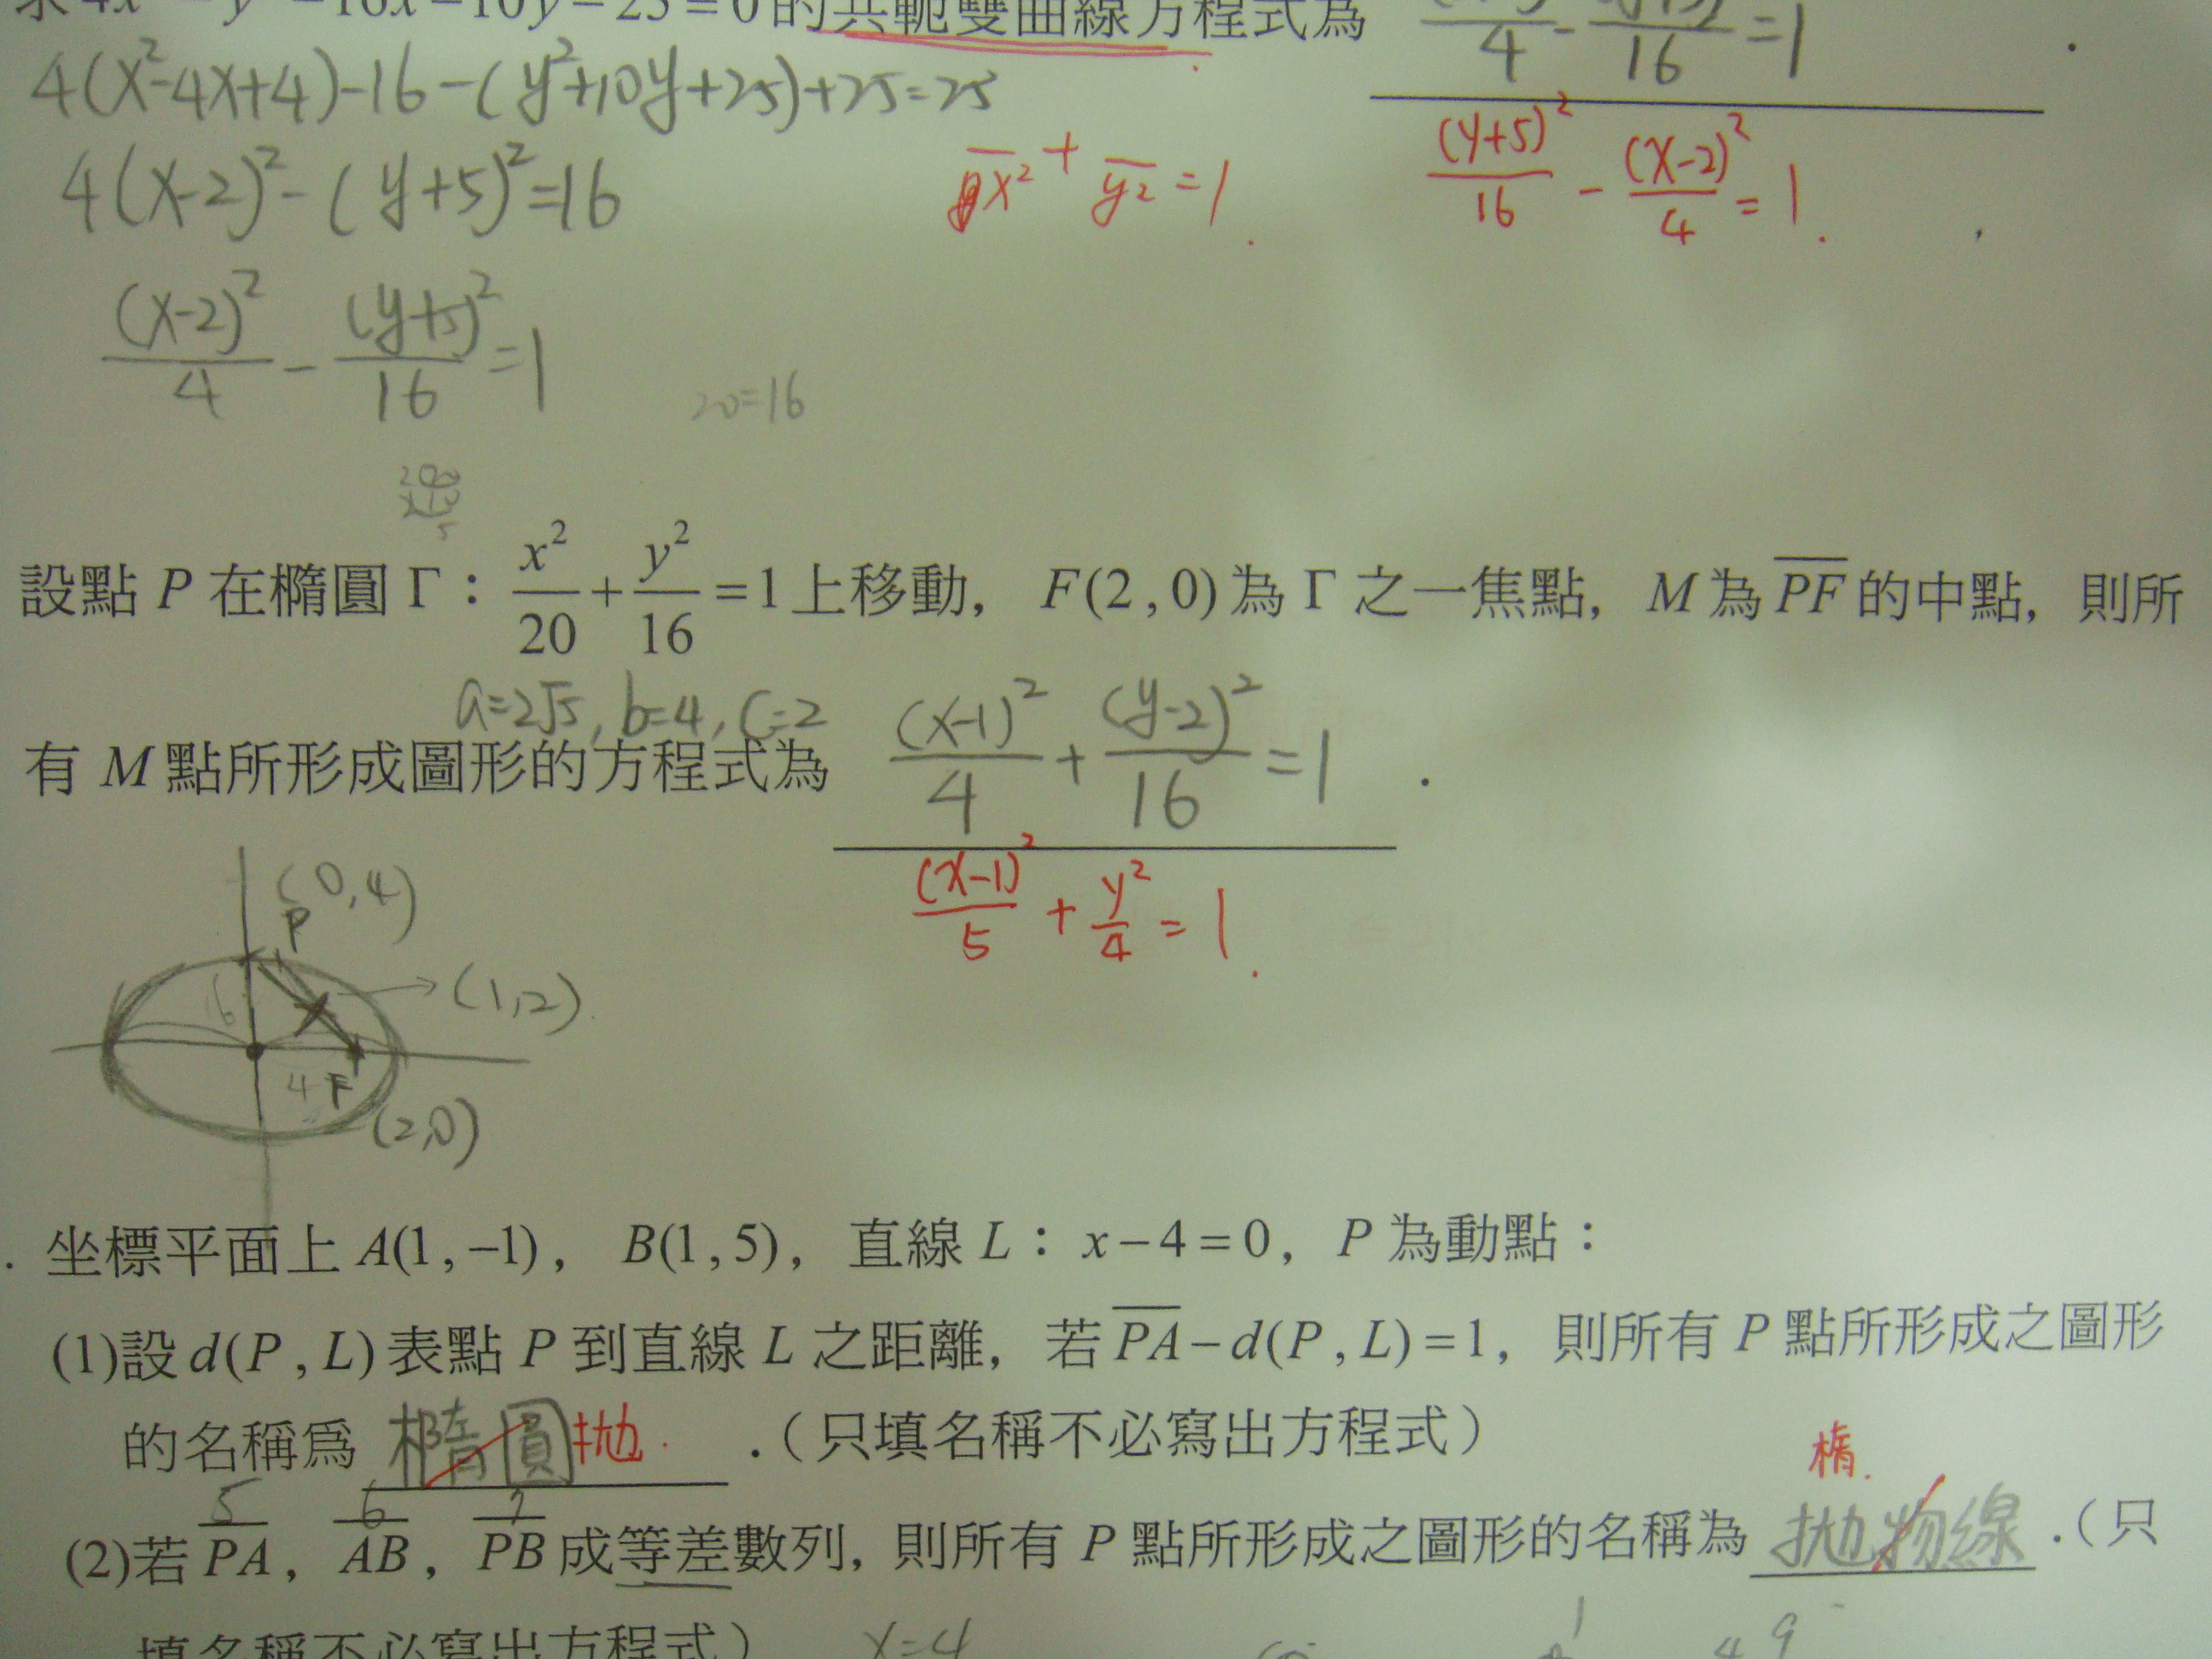 4x² − y² − 16x − 10y − 25 = 0 的共軛雙曲線方程式為
4 − 16 = 1
4(x²-4x+4)-16-(y²+10y+25)+25=25
(y+5)²/16 - (x-2)²/4 = 1.
4(x-2)²-(y+5)²=16
x² + y² = 1.
(x-2)²/4 - (y+5)²/16 = 1
20=16
設點 P 在橢圓 Γ：x²/20 + y²/16 = 1 上移動，F(2,0)為 Γ 之一焦點，M 為 PF 的中點，則所
a=2√5, b=4, c=2
有 M 點所形成圖形的方程式為 (x-1)²/4 + (y-2)²/16 = 1 .
(x-1)²/5 + y²/4 = 1.
(0,4)
P
(1,2)
4 F
(2,0)
. 坐標平面上 A(1,−1)，B(1,5)，直線 L：x−4=0，P 為動點：
(1)設 d(P,L) 表點 P 到直線 L 之距離，若 PA−d(P,L)=1，則所有 P 點所形成之圖形
的名稱爲 橢圓 拋. .（只填名稱不必寫出方程式）
橢.
5 6 7
(2)若 PA，AB，PB 成等差數列，則所有 P 點所形成之圖形的名稱為 拋物線 .（只
填名稱不必寫出方程式）
x=4